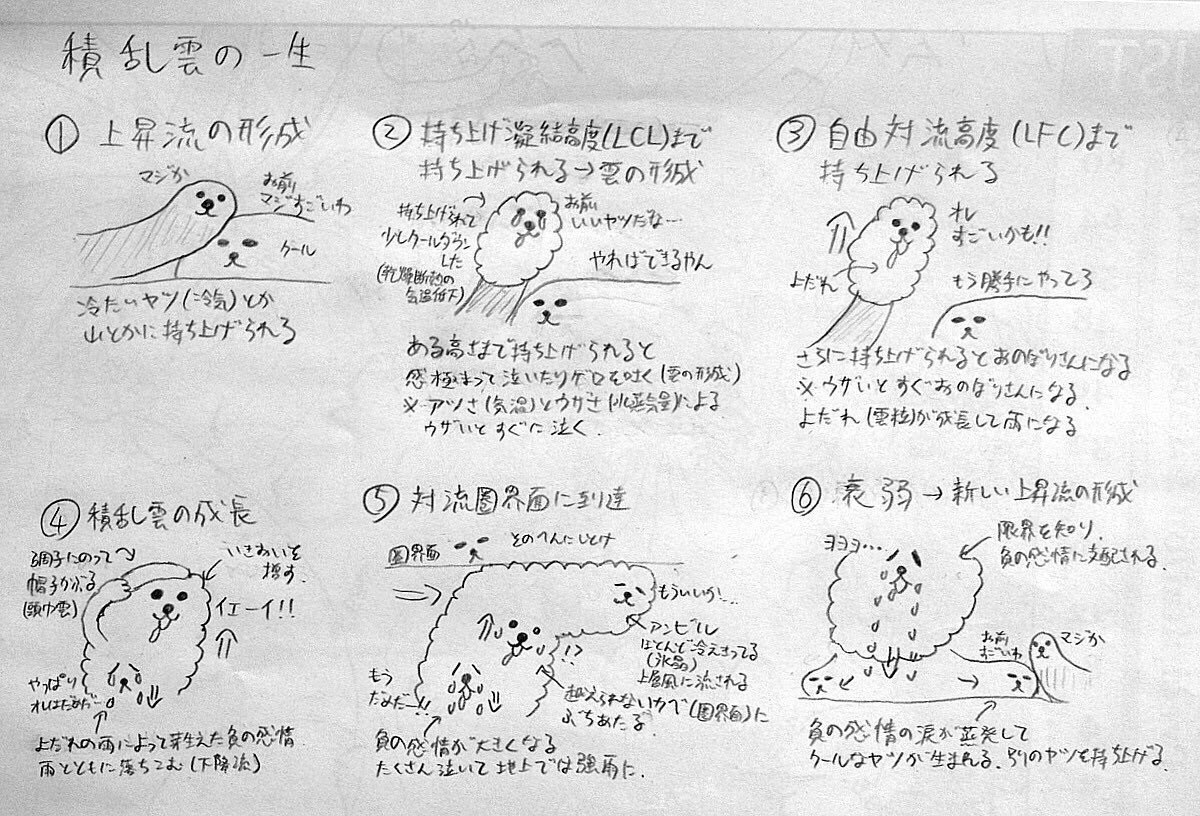 積乱雲の一生
① 上昇流の形成
マジか
お前
マジすごいわ
クール
冷たいヤツ(冷気)とか
山とかに持ち上げられる
② 持ち上げ凝結高度(LCL)まで
持ち上げられる→雲の形成
持ち上げられて
少しクールダウン
した
(乾燥断熱の
気温低下)
お前
いいヤツだな…
やればできるやん
ある高さまで持ち上げられると
感極まって泣いたりゲロを吐く(雲の形成)
※アツさ(気温)とウザさ(水蒸気量)による
ウザいとすぐに泣く.
③ 自由対流高度(LFC)まで
持ち上げられる
オレ
すごいかも!!
よだれ
もう勝手にやってろ
さらに持ち上げられるとあのぼりさんになる
※ウザいとすぐおのぼりさんになる.
よだれ(雲粒)が成長して雨になる
④ 積乱雲の成長
調子にのって
帽子かぶる
(頭巾雲)
いきおいを
増す.
イエーイ!!
やっぱり
オレはだめだ…
よだれの雨によって芽生えた負の感情
雨とともに落ちこむ(下降流)
⑤ 対流圏界面に到達
圏界面
そのへんにしとけ
もういいか…
アンビル
ほとんど冷えきってる
(氷晶)
上層風に流される
!?
越えられないカベ(圏界面)に
ぶちあたる
もう
だめだー!!
負の感情が大きくなる
たくさん泣いて地上では強雨に.
⑥ 衰弱→新しい上昇流の形成
ヨヨヨ…
限界を知り,
負の感情に支配される.
お前
すごいわ
マジか
負の感情の涙が蒸発して
クールなヤツが生まれる. 別のヤツを持ち上げる.